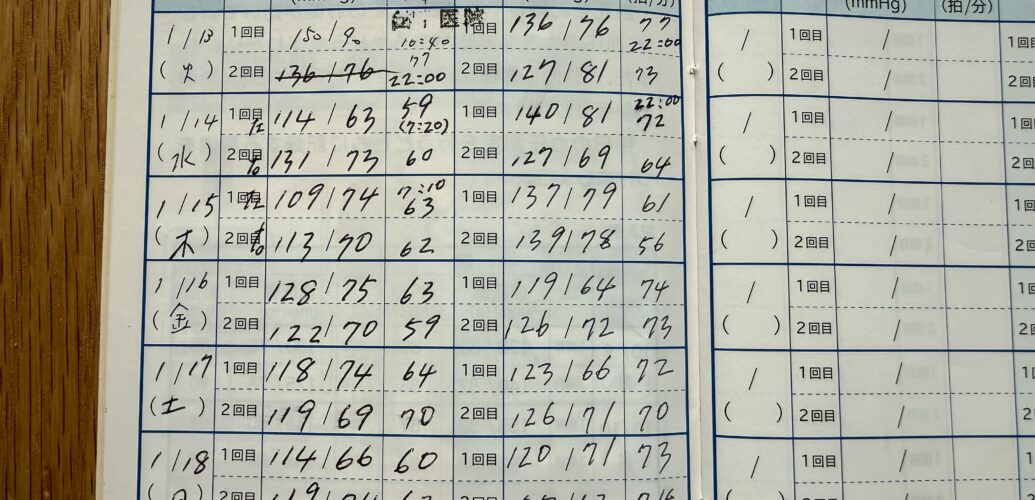 (mmHg) (拍/分) (mmHg) (拍/分)
医院
1/13 1回目 150/90 10:40 1回目 136/76 77 22:00 / 1回目 / 1回目
(火) 2回目 136/76 77 22:00 2回目 127/81 73 ( ) 2回目 / 2回目
1/14 1回目 114/63 59 (7:20) 1回目 140/81 22:00 72 / 1回目 / 1回目
(水) 2回目 131/73 60 2回目 127/69 64 ( ) 2回目 / 2回目
1/15 1回目 109/74 7:10 63 1回目 137/79 61 / 1回目 / 1回目
(木) 2回目 113/70 62 2回目 139/78 56 ( ) 2回目 / 2回目
1/16 1回目 128/75 63 1回目 119/64 74 / 1回目 / 1回目
(金) 2回目 122/70 59 2回目 126/72 73 ( ) 2回目 / 2回目
1/17 1回目 118/74 64 1回目 123/66 72 / 1回目 / 1
(土) 2回目 119/69 70 2回目 126/71 70 ( ) 2回目 / 2
1/18 1回目 114/66 60 1回目 120/71 73 / 1回目 / 1
2回目 2回目 2回目